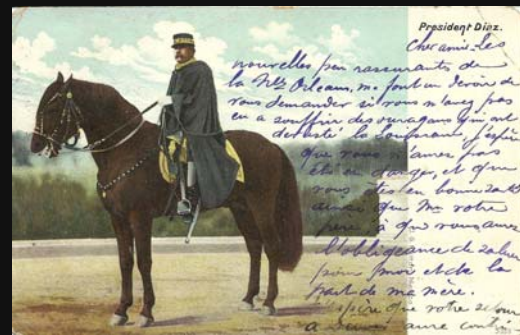 President Diaz.
Cher ami. Les
nouvelles peu rassurants de
la Nlle Orleans, me font un devoir de
vous demander si vous n'avez pas
eu a souffrir des ouragans qui ont
devasté la Louisiane, j'espère
que vous n'avez pas
été en danger, et que
vous êtes en bonne santé
ainsi que Mr votre
père à qui vous aurez
l'obligeance de saluer
pour moi et de la
part de ma mère.
J'espère que votre retour
a